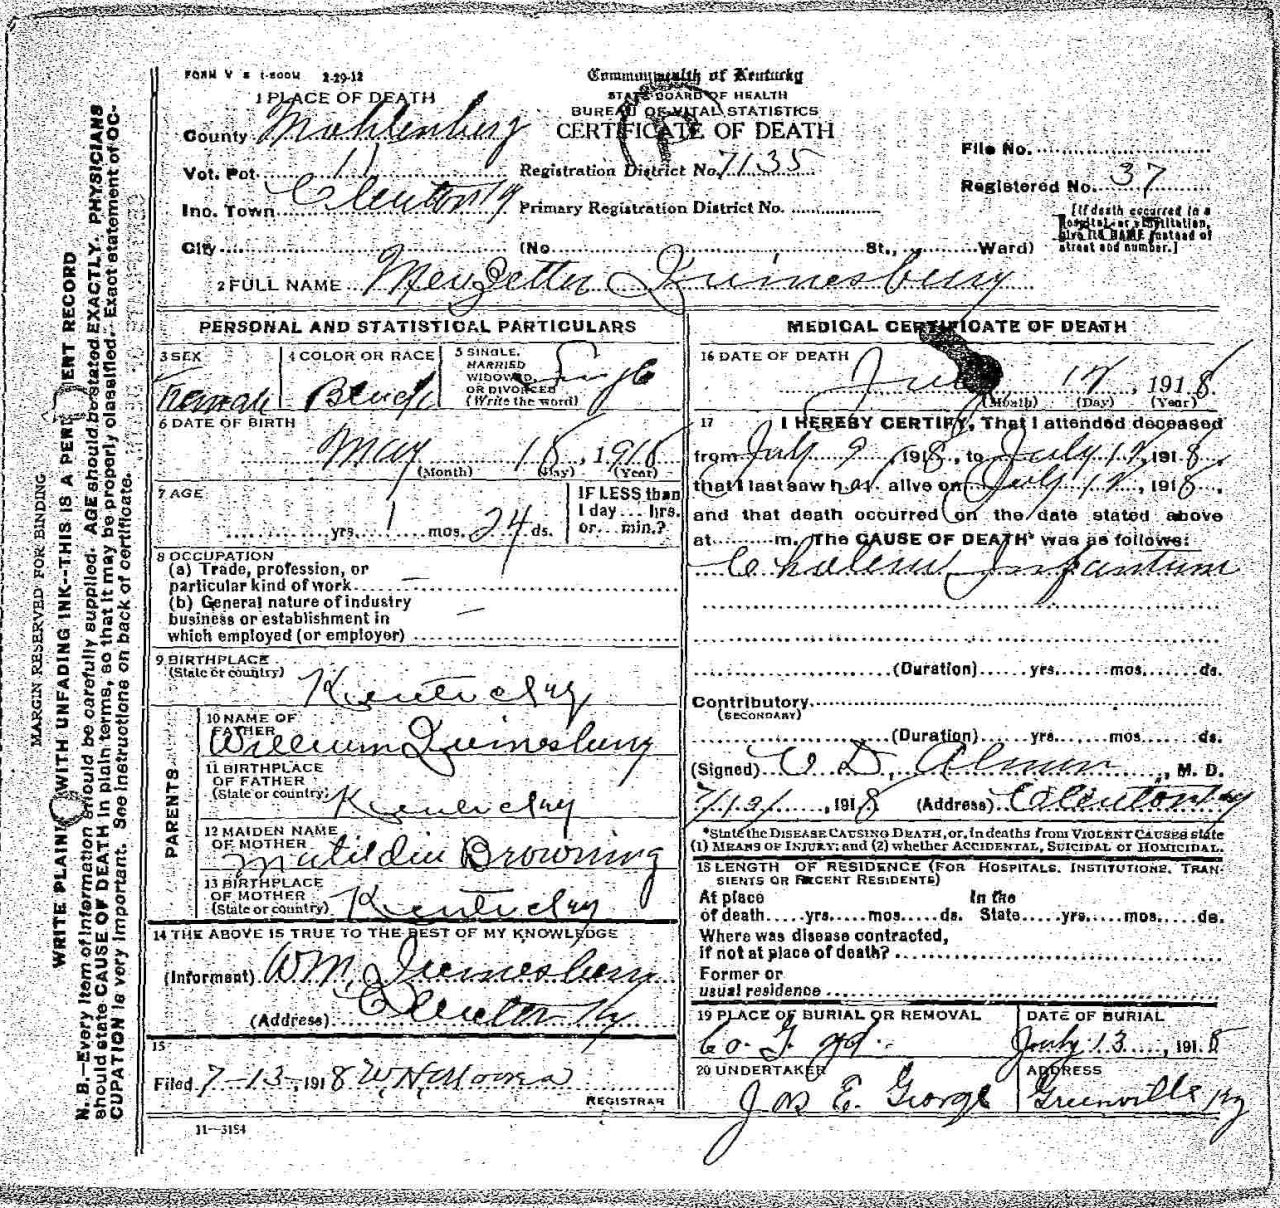 FORM V S 1-500M 2-29-12
Commonwealth of Kentucky
STATE BOARD OF HEALTH
BUREAU OF VITAL STATISTICS
CERTIFICATE OF DEATH
1 PLACE OF DEATH
County Muhlenberg
Vot. Pct. 11 Registration District No. 7135
Inc. Town Cleaton Ky Primary Registration District No.
City (No. St., Ward)
File No.
Registered No. 37
[If death occurred in a
hospital or institution,
give its NAME instead of
street and number.]
2 FULL NAME Quinesberry
PERSONAL AND STATISTICAL PARTICULARS
3 SEX Female
4 COLOR OR RACE Black
5 SINGLE, MARRIED WIDOWED, OR DIVORCED (Write the word) Single
6 DATE OF BIRTH
May 18, 1918
(Month) (Day) (Year)
7 AGE
yrs. 1 mos. 24 ds.
IF LESS than
1 day... hrs.
or... min.?
8 OCCUPATION
(a) Trade, profession, or
particular kind of work —
(b) General nature of industry
business or establishment in —
which employed (or employer)
9 BIRTHPLACE
(State or country) Kentucky
PARENTS
10 NAME OF
FATHER William Quinesberry
11 BIRTHPLACE
OF FATHER
(State or country) Kentucky
12 MAIDEN NAME
OF MOTHER Matildia Browning
13 BIRTHPLACE
OF MOTHER
(State or country) Kentucky
14 THE ABOVE IS TRUE TO THE BEST OF MY KNOWLEDGE
(Informant) Wm. Quinesberry
(Address) Cleaton Ky
15
Filed 7-13-, 1918 W H Moores
REGISTRAR
11—3184
MEDICAL CERTIFICATE OF DEATH
16 DATE OF DEATH
12, 1918
(Month) (Day) (Year)
17 I HEREBY CERTIFY, That I attended deceased
from July 9, 1918, to July 12, 1918,
that I last saw h alive on July 12, 1918,
and that death occurred on the date stated above
at m. The CAUSE OF DEATH* was as follows:
Cholera Infantum
(Duration) yrs. mos. ds.
Contributory
(SECONDARY)
(Duration) yrs. mos. ds.
(Signed) D. , M. D.
, 1918 (Address) Cleaton Ky
*State the DISEASE CAUSING DEATH, or, in deaths from VIOLENT CAUSES state
(1) MEANS OF INJURY; and (2) whether ACCIDENTAL, SUICIDAL or HOMICIDAL.
18 LENGTH OF RESIDENCE (FOR HOSPITALS, INSTITUTIONS, TRAN-
SIENTS OR RECENT RESIDENTS)
At place In the
of death yrs. mos. ds. State yrs. mos. ds.
Where was disease contracted,
if not at place of death?
Former or
usual residence
19 PLACE OF BURIAL OR REMOVAL
Co.
DATE OF BURIAL
July 13, 1918
20 UNDERTAKER
Jas E. George
ADDRESS
Greenville Ky
MARGIN RESERVED FOR BINDING
WRITE PLAINLY WITH UNFADING INK—THIS IS A PERMANENT RECORD
N. B.—Every item of information should be carefully supplied. AGE should be stated EXACTLY. PHYSICIANS
should state CAUSE OF DEATH in plain terms, so that it may be properly classified. Exact statement of OC-
CUPATION is very important. See instructions on back of certificate.